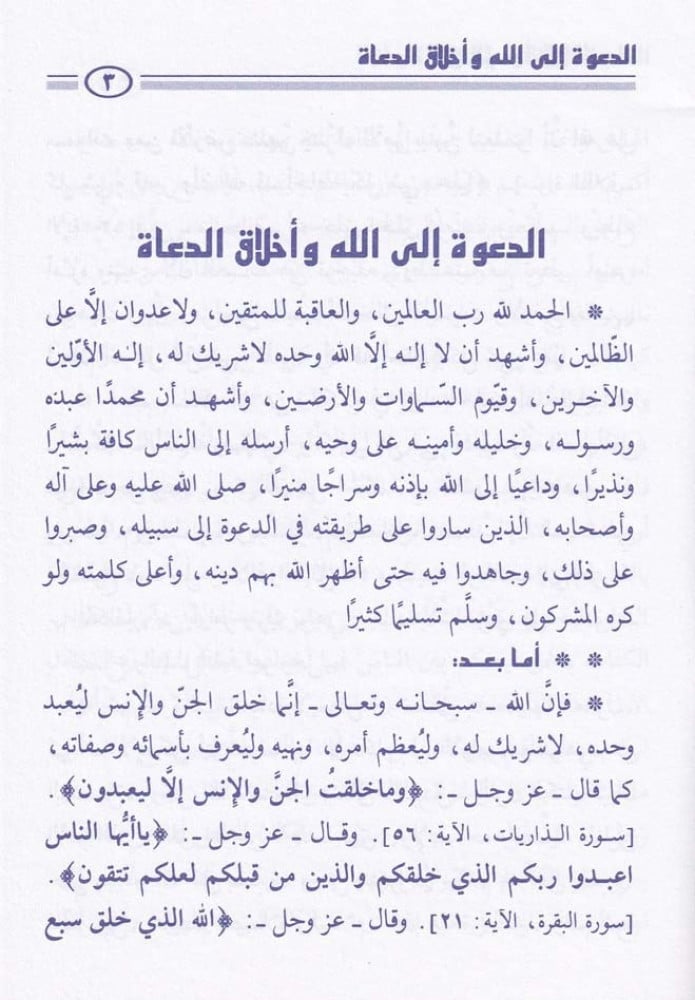 الدعوة إلى الله وأخلاق الدعاة
٣
الدعوة إلى الله وأخلاق الدعاة
* الحمد لله رب العالمين، والعاقبة للمتقين، ولاعدوان إلَّا على
الظَّالمين، وأشهد أن لا إلـه إلَّا الله وحده لاشريك له، إلـه الأوّلين
والآخـرين، وقيّوم السّـماوات والأرضـين، وأشهـد أن محمدًا عبده
ورسـولـه، وخليله وأمينـه على وحيه، أرسله إلى الناس كافة بشيرًا
ونذيرًا، وداعيًا إلى الله بإذنه وسراجًا منيرًا، صلى الله عليه وعلى آله
وأصحابه، الذين ساروا على طريقته في الدعوة إلى سبيله، وصبروا
على ذلك، وجاهدوا فيه حتى أظهر الله بهم دينه، وأعلى كلمته ولو
كره المشركون، وسلَّم تسليمًا كثيرًا
* * أما بعـد:
* فإنَّ الله ـ سبحانـه وتعالى ـ إنَّما خلق الجن والإنس ليُعبد
وحده، لاشريك له، وليُعظم أمره، ونهيه وليُعرف بأسمائه وصفاته،
كما قال ـ عز وجل ـ ﴿وماخلقتُ الجنَّ والإنس إلَّا ليعبدون﴾.
[سورة الذاريات، الآية: ٥٦]. وقـال ـ عز وجل ـ: ﴿ياأيُّها الناس
اعبـدوا ربكم الذي خلقكم والذين من قبلكم لعلكم تتقون﴾.
[سورة البقرة، الآية: ٢١]. وقال ـ عز وجل ـ: ﴿الله الذي خلق سبع